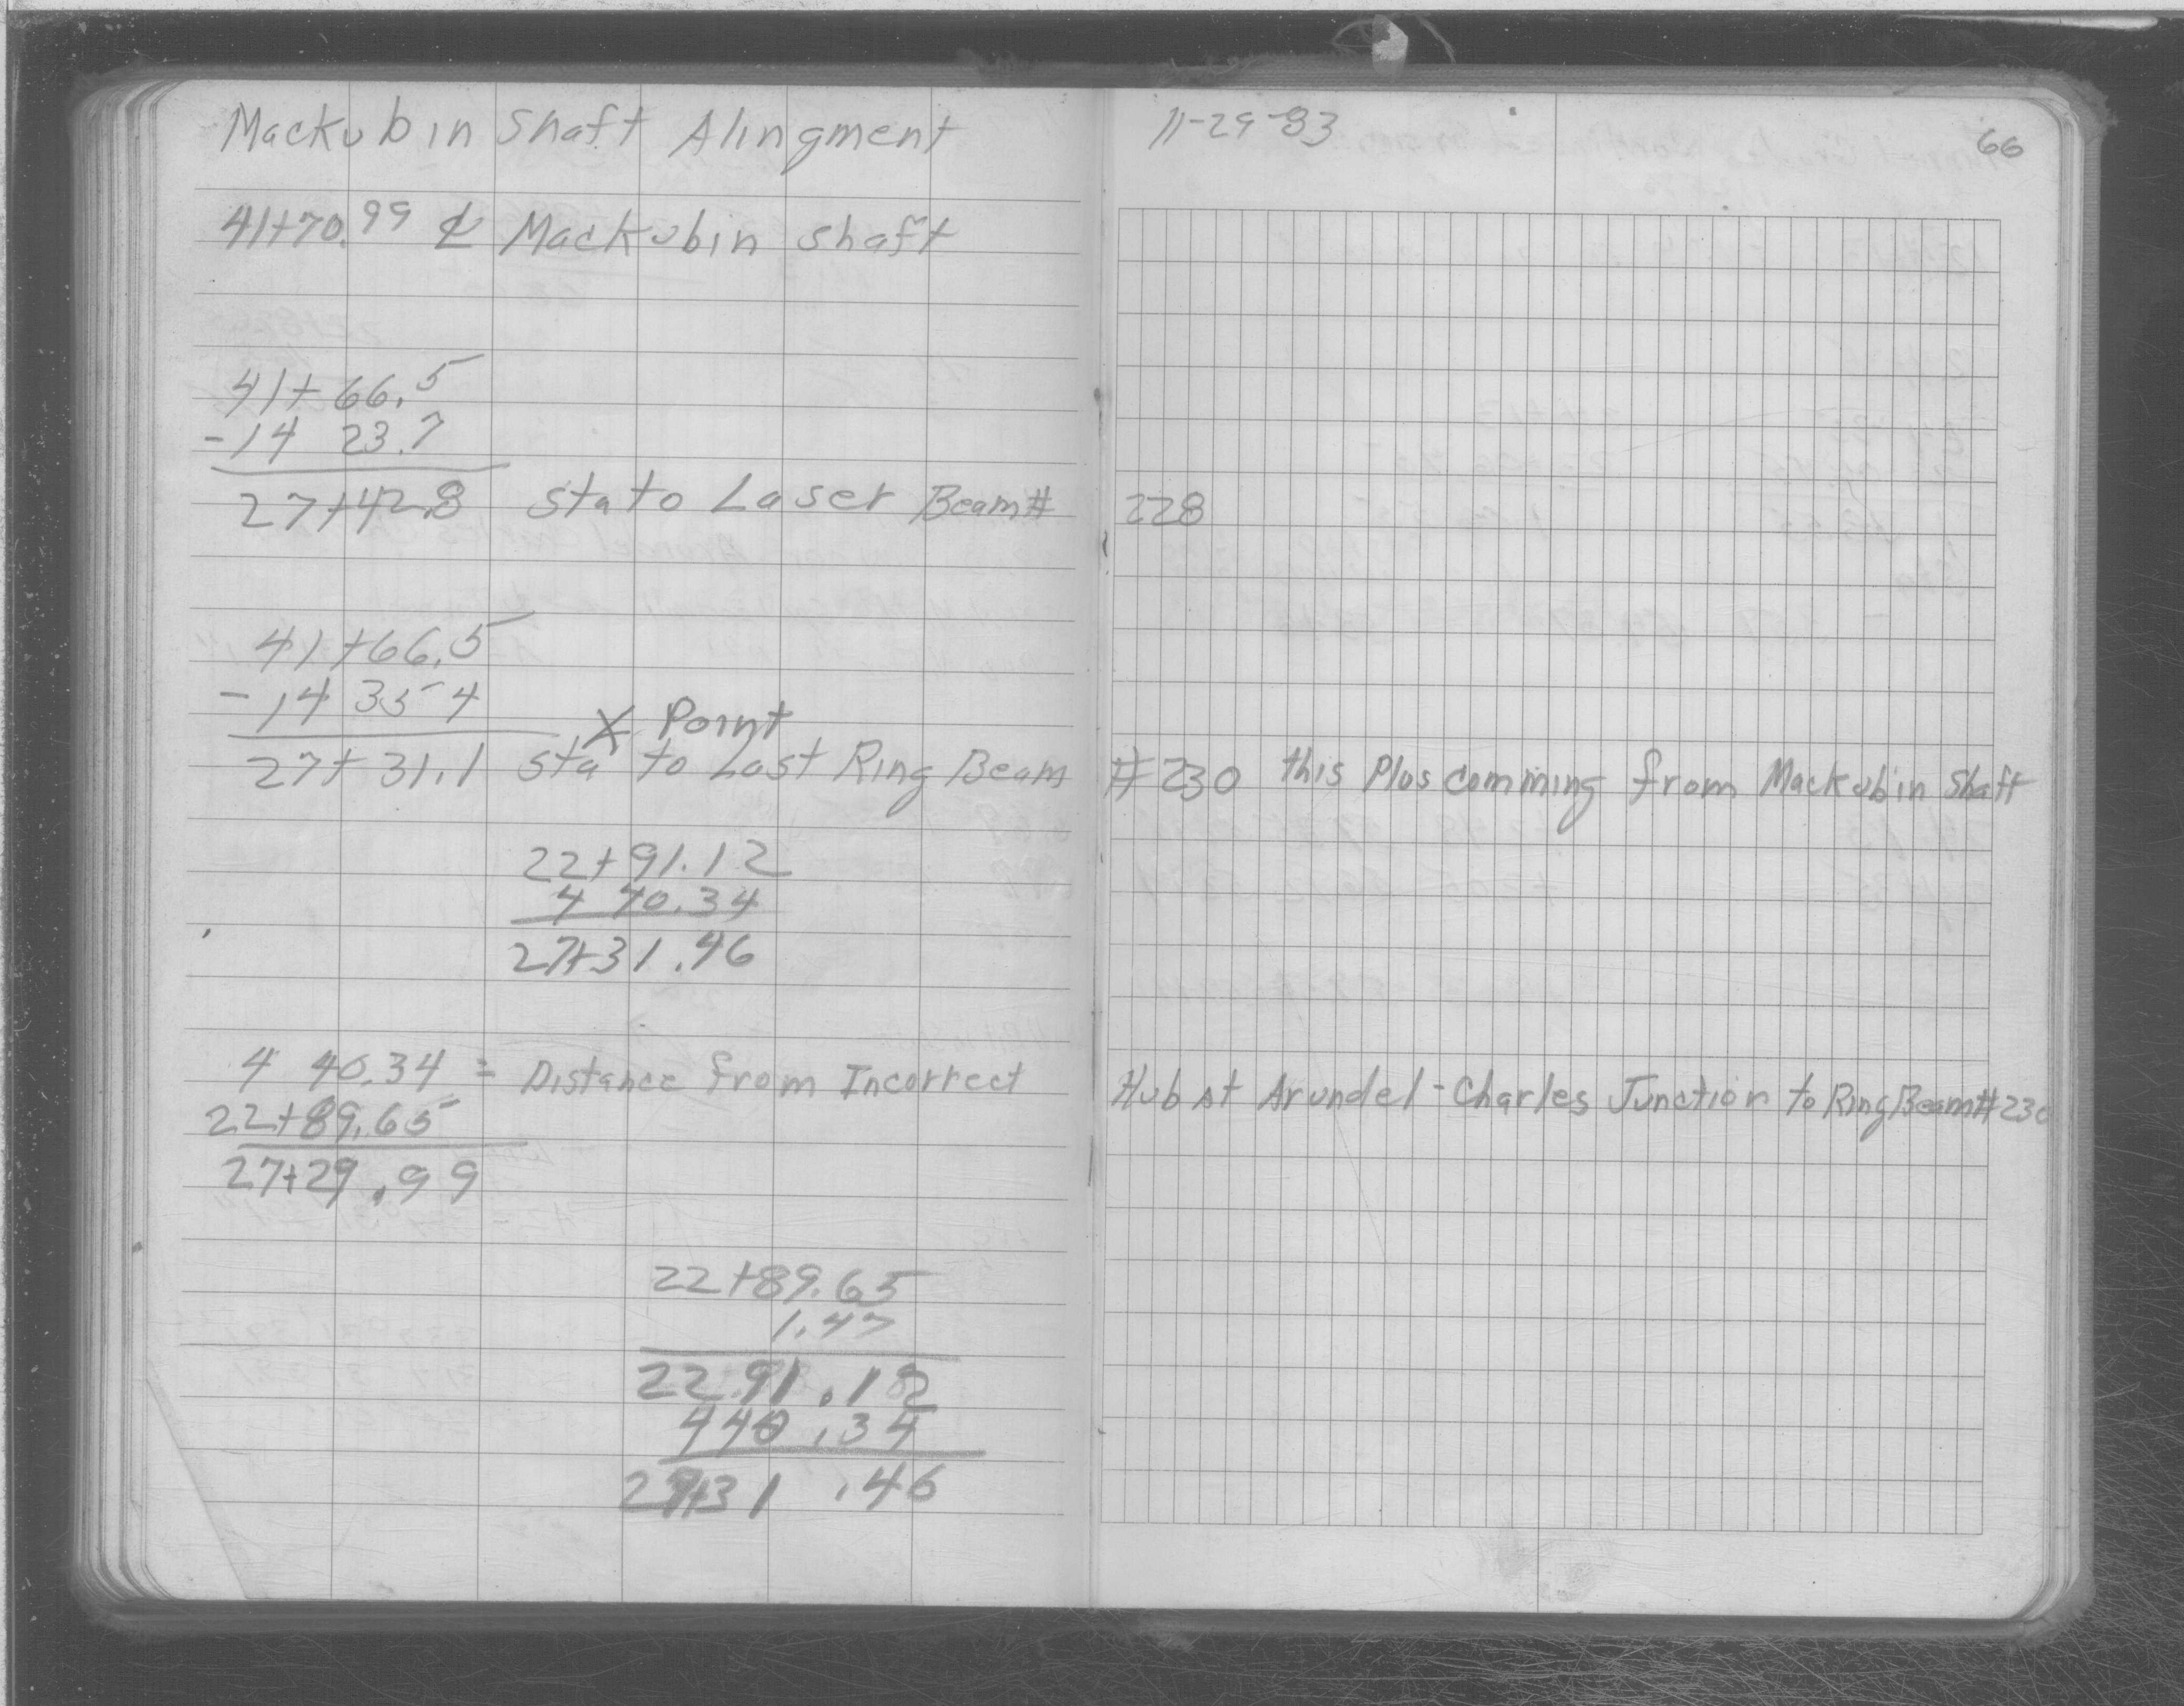 Mackubin Shaft Alingment 11-29-83 66
41+70.99 ℄ Mackubin shaft
41+66.5
-14 23.7
27+42.8 sta to Laser Beam# 228
41+66.5
-14 35 4
X Point
27+31.1 sta to Last Ring Beam #230 this Plus comming from Mackubin Shaft
22+91.12
4 40.34
27+31.46
4 40.34 = Distance from Incorrect Hub at Arundel-Charles Junction to Ring Beam#230
22+89.65
27+29.99
22+89.65
1.47
22 91.12
440.34
27+31.46